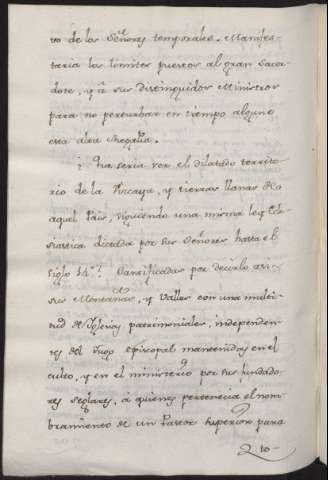 to de los Señores temporales. Manifes-
taria los limites puestos al gran Sacer-
dote, y â sus distinguidos Ministros
para no perturbar en tiempo alguno
esta alta Regalia.
¿ Que seria ver el dilatado territo-
rio de la Vizcaya, y tierras llanas de
aquel Pais, siguiendo una misma ley Ecle-
siastica dictada por sus Señores hasta el
siglo 14.º? Clarificadas por decirlo asi
sus Montañas, y Valles con una multi-
tud de Iglesias patrimoniales, independien-
tes del Vuqo Episcopal mantenidas en el
culto, y en el ministerio por sus fundado-
res seglares, á quienes pertenecia el nom-
bramiento de un Pastor superior para
to-